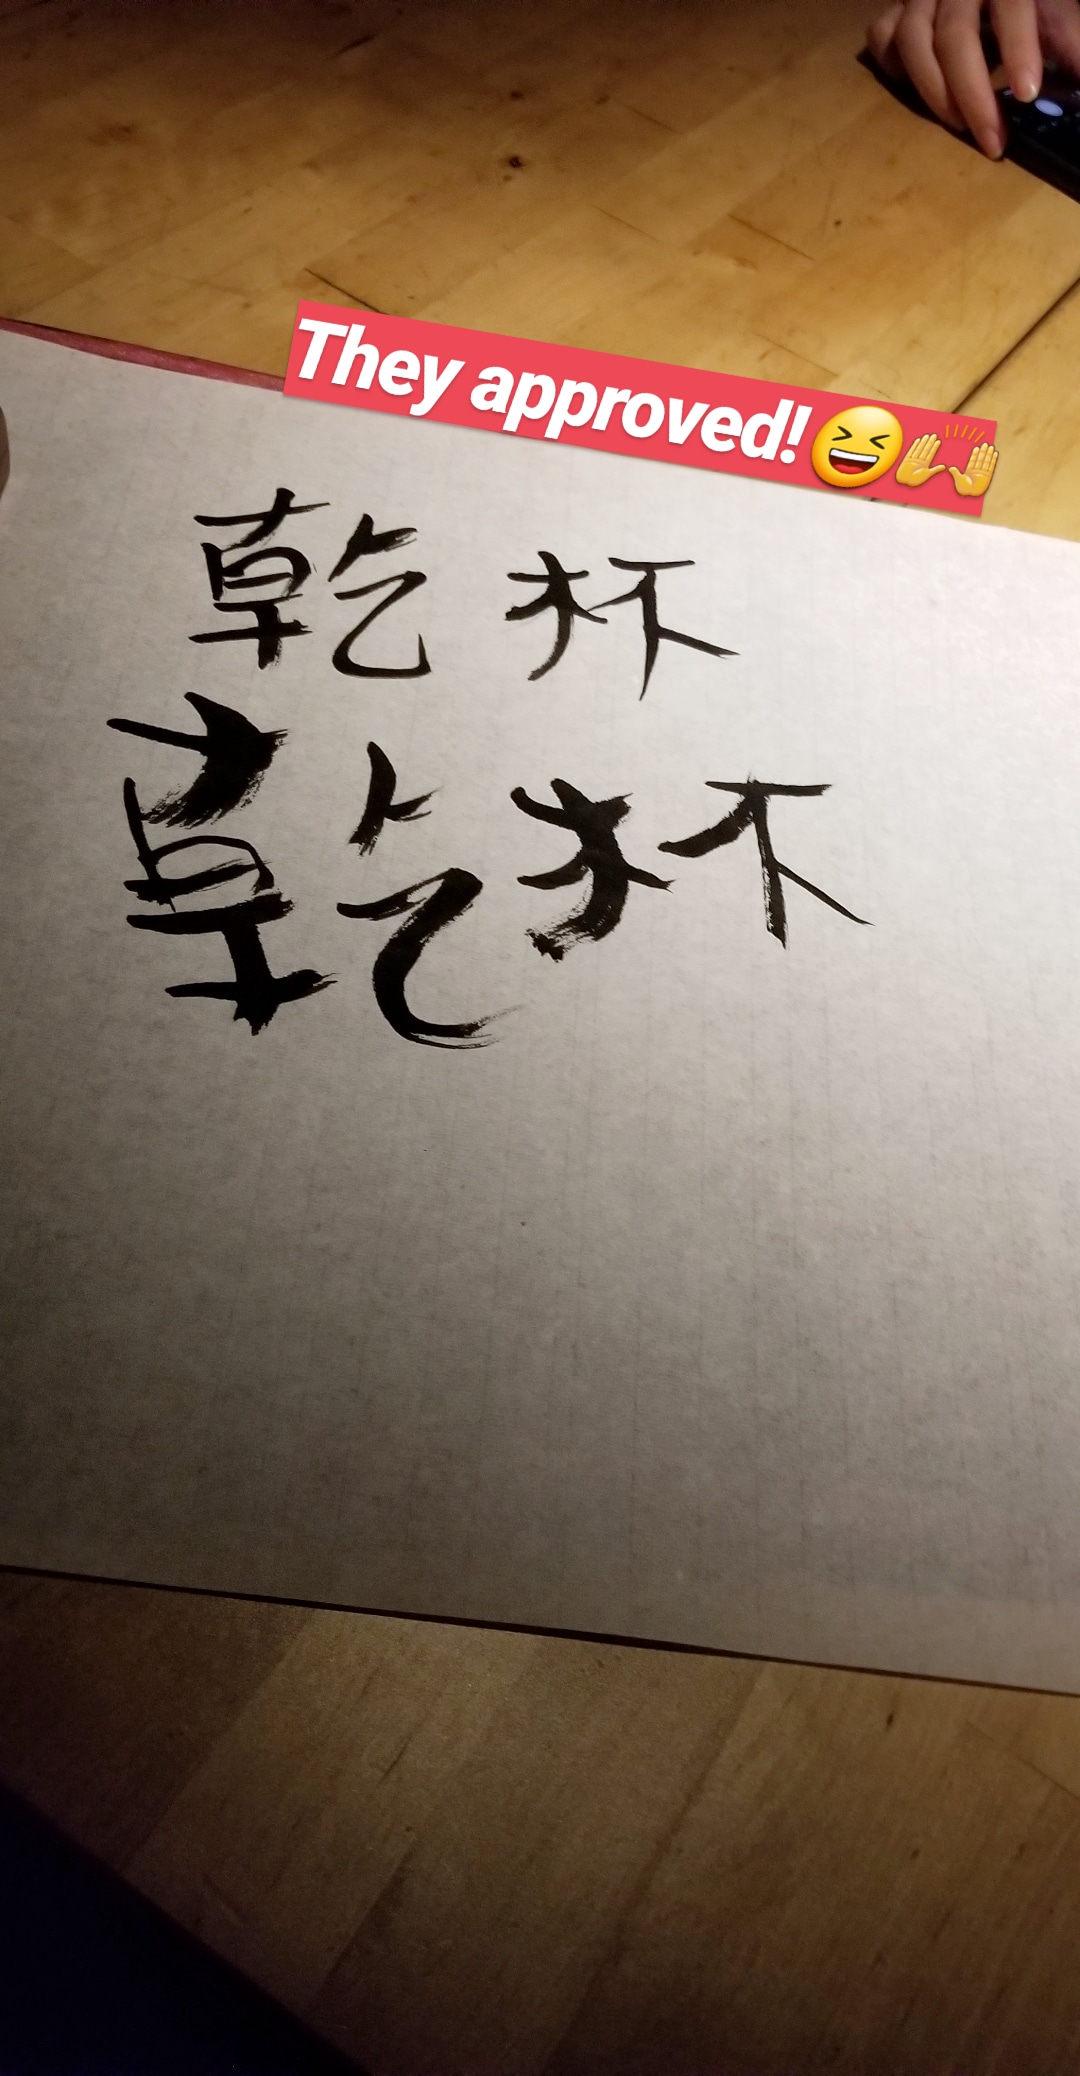 They approved!😆🙌
乾杯
乾杯